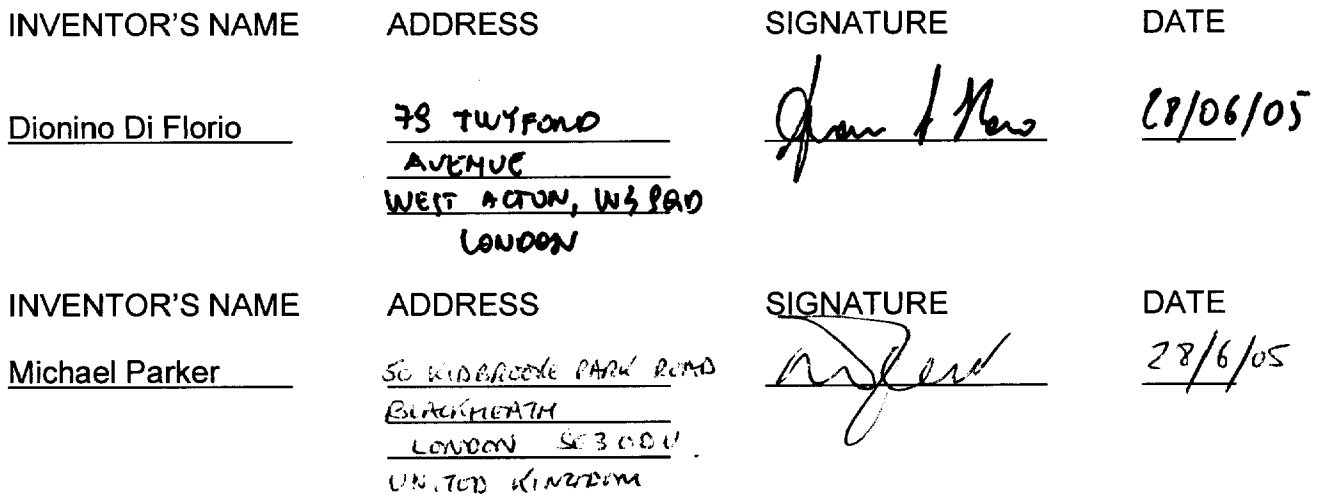 INVENTOR'S NAME ADDRESS SIGNATURE DATE
Dionino Di Florio 79 TWYFORD 28/06/05
AVENUE
WEST ACTON, W3
LONDON
INVENTOR'S NAME ADDRESS SIGNATURE DATE
Michael Parker 50 KIDBROOKE PARK ROAD 28/6/05
BLACKHEATH
LONDON SE3 0DU
UNITED KINGDOM